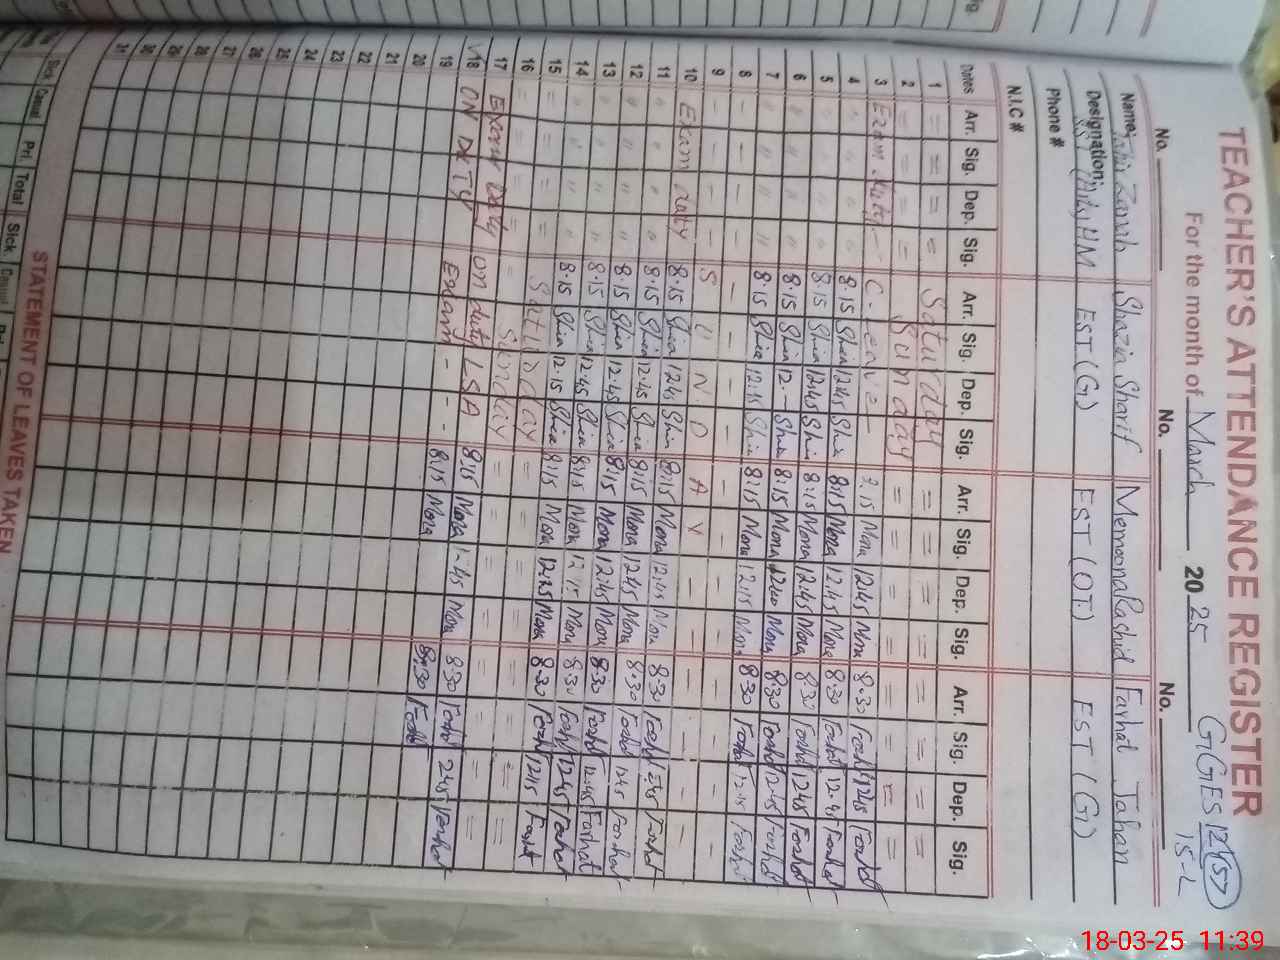 TEACHER'S ATTENDANCE REGISTER
For the month of March 2025 GGES 12(157) 15-L
No. No. No.
Name: Zanib Shazia Sharif Memoona Rashid Farhat Jahan
Designation: SST HM EST (G) EST (OT.) EST (G)
Phone #
N.I.C #
Dates Arr. Sig. Dep. Sig. Arr. Sig. Dep. Sig. Arr. Sig. Dep. Sig. Arr. Sig. Dep. Sig.
1 = = = = Saturday = = = = = = = =
2 = = = = Sunday = = = = = = = =
3 Exam duty - C-leave Mona 12:45 Mona 8:30 Farhat 12:45 Farhat
4 " " " " 8:15 Shia 12:45 Shia 8:15 Mona 12:45 Mona 8:30 Farhat 12:45 Farhat
5 " " " " 8:15 Shia 12:45 Shia 8:15 Mona 12:45 Mona 8:30 Farhat 12:45 Farhat
6 " " " " 8:15 Shia 12 - Shia 8:15 Mona Mona 8:30 Farhat 12:45 Farhat
7 " " " " 8:15 Shia 12:15 Shia 8:15 Mona 12:15 Mona 8:30 Farhat 12:15 Farhat
8 - - - - - - - - - - - -
9 - - - - S U N D A Y - - - -
10 Exam duty 8:15 Shia 12:45 Shia 8:15 Mona 12:45 Mona 8:30 Farhat Farhat
11 " " " " 8:15 Shia 12:45 Shia 8:15 Mona 12:45 Mona 8:30 Farhat 12:45 Farhat
12 " " " " 8:15 Shia 12:45 Shia 8:15 Mona 12:45 Mona 8:30 Farhat 12:45 Farhat
13 " " " " 8:15 Shia 12:45 Shia 8:15 Mona Mona 8:30 Farhat 12:45 Farhat
14 " " " " 8:15 Shia 12:15 Shia 8:15 Mona Mona 8:30 Farhat 12:15 Farhat
15 = = = = Saturday = = = = = = = =
16 = = = = Sunday = = = = = = = =
17 Exam Duty on duty LSA 8:15 Mona Mona 8:30 Farhat 2:45 Farhat
18 ON DUTY Exam - - - 8:15 Mona 8:30 Farhat
19
20
21
22
23
24
25
26
27
28
29
30
31
STATEMENT OF LEAVES TAKEN
Sick Casual Pri. Total Sick Casual
18-03-25 11:39